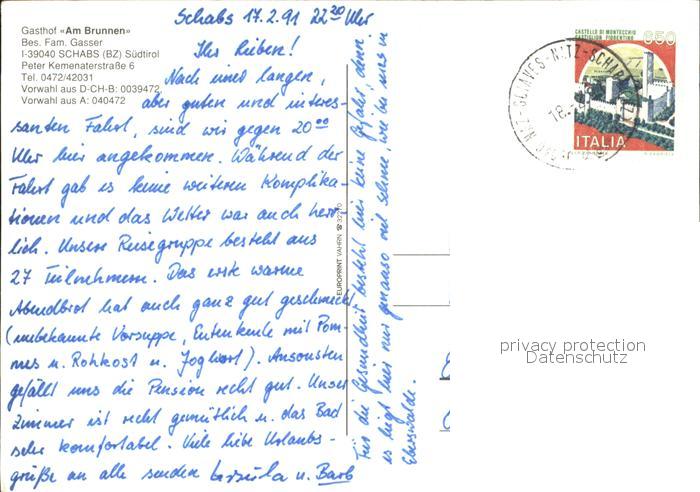 Gasthof «Am Brunnen»
Bes. Fam. Gasser
I-39040 SCHABS (BZ) Südtirol
Peter Kemenaterstraße 6
Tel. 0472/42031
Vorwahl aus D-CH-B: 0039472
Vorwahl aus A: 040472
Schabs 17.2.91 22²⁰ Uhr
Ihr Lieben!
Nach einer langen,
aber guten und interes-
santen Fahrt, sind wir gegen 20⁰⁰
Uhr hier angekommen. Während der
Fahrt gab es keine weiteren Komplika-
tionen und das Wetter war auch herr-
lich. Unsere Reisegruppe besteht aus
27 Teilnehmern. Das erste warme
Abendbrot hat auch ganz gut geschmeckt
(unbekannte Vorsuppe, Entenkeule mit Pom-
mes u. Rohkost u. Joghurt). Ansonsten
gefällt uns die Pension recht gut. Unser
Zimmer ist recht gemütlich u. das Bad
sehr komfortabel. Viele liebe Urlaubs-
grüße an alle senden Ursula u. Barb
Für die Gesundheit besteht hier keine Gefahr, denn
es liegt hier nur genauso viel Schnee wie bei uns in
Eberswalde.
EUROPRINT VAHRN ☎ 32210
CASTELLO DI MONTECCHIO
CASTIGLION FIORENTINO
850
ITALIA
NAZ-SCIAVES-NATZ-SCHABS
18.
privacy protection
Datenschutz